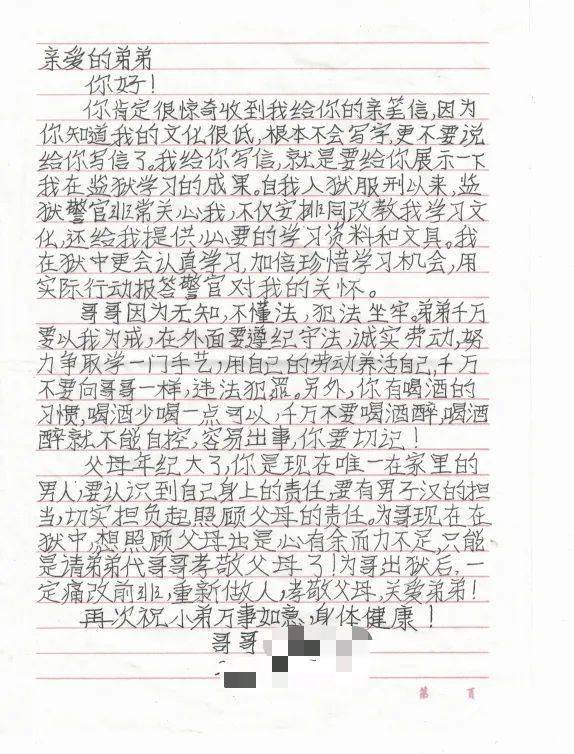 亲爱的弟弟
你好!
你肯定很惊奇收到我给你的亲笔信,因为
你知道我的文化很低,根本不会写字,更不要说
给你写信了。我给你写信,就是要给你展示一下
我在监狱学习的成果。自我入狱服刑以来,监
狱警官非常关心我,不仅安排同改教我学习文
化,还给我提供必要的学习资料和文具。我
在狱中更会认真学习,加倍珍惜学习机会,用
实际行动报答警官对我的关怀。
哥哥因为无知,不懂法,犯法坐牢。弟弟千万
要以我为戒,在外面要遵纪守法,诚实劳动,努
力争取学一门手艺,用自己的劳动养活自己,千万
不要向哥哥一样,违法犯罪。另外,你有喝酒的
习惯,喝酒少喝一点可以,千万不要喝酒醉,喝酒
醉就不能自控,容易出事,你要切记!
父母年纪大了,你是现在唯一在家里的
男人,要认识到自己身上的责任,要有男子汉的担
当,切实担负起照顾父母的责任。为哥现在在
狱中,想照顾父母也是心有余而力不足,只能
是请弟弟代哥哥孝敬父母了!为哥出狱后,一
定痛改前非,重新做人,孝敬父母,关爱弟弟!
再次祝小弟万事如意,身体健康!
哥哥
第 页